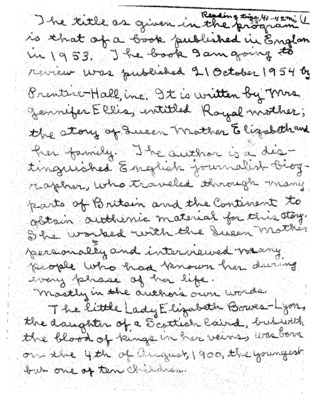 Reading time 41-42 min
The title as given in the program
is that of a book published in England
in 1953. The book I am going to
review was published 21 October 1954 by
Prentice-Hall, inc. It is written by Mrs.
Jennifer Ellis, entitled Royal Mother;
the story of Queen Mother Elizabeth and
her family. The author is a dis-
tinguished English journalist biog-
rapher, who traveled through many
parts of Britain and the Continent to
obtain authenic material for this story.
She worked with the Queen Mother
personally and interviewed many
people who had known her during
every phase of her life.
Mostly in the author's own words
The little Lady Elizabeth Bowes-Lyon,
the daughter of a Scottish Laird, but with
the blood of kings in her veins, was born
on the 4th of August, 1900, the youngest
but one of ten children.